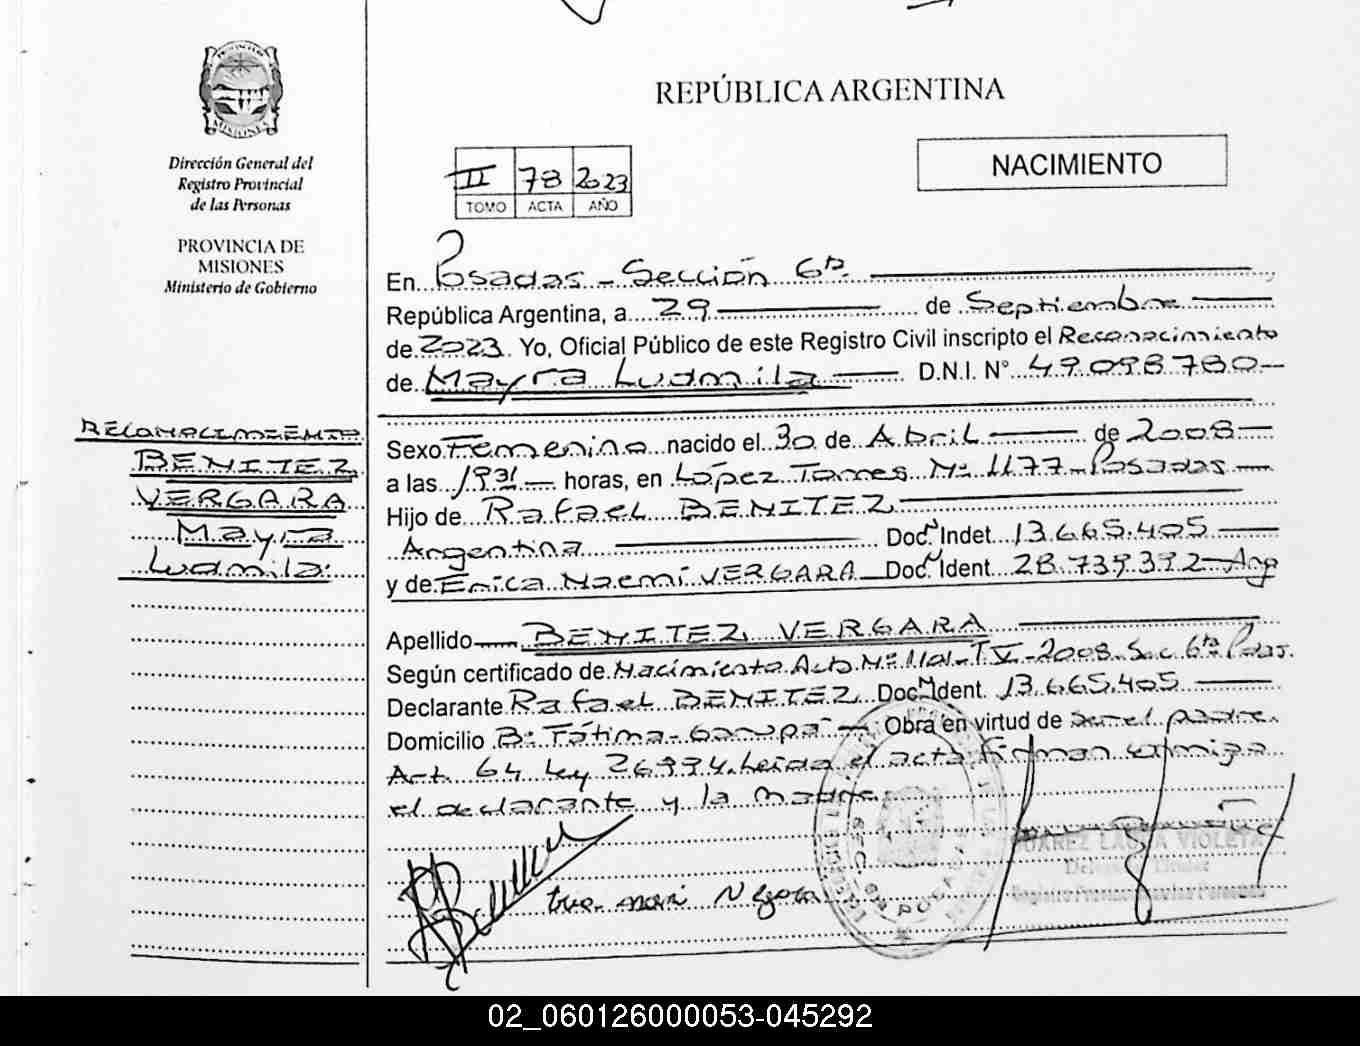 PROVINCIA DE
MISIONES
Dirección General del
Registro Provincial
de las Personas
PROVINCIA DE
MISIONES
Ministerio de Gobierno
REPÚBLICA ARGENTINA
NACIMIENTO
II 78 2023
TOMO ACTA AÑO
En Posadas - Sección 6ta.
República Argentina, a 29 de Septiembre
de 2023. Yo, Oficial Público de este Registro Civil inscripto el Reconocimiento
de Mayra Ludmila D.N.I. N° 49.098.780
RECONOCIMIENTO
BENITEZ
VERGARA
Mayra
Ludmila
Sexo Femenino nacido el 30 de Abril de 2008
a las 1931 horas, en López Torres N° 1177 - Posadas
Hijo de Rafael BENITEZ
Argentina Doc. N Indet 13.665.405
y de Erica Noemí VERGARA Doc. N Ident 28.739.392 - Arg
Apellido BENITEZ VERGARA
Según certificado de Nacimiento Acta N° 1101 - T V - 2008 - Sec 6ta Pdas.
Declarante Rafael BENITEZ Doc. N Ident. 13.665.405
Domicilio B° Fátima - Garupá Obra en virtud de ser el padre.
Art. 64 Ley 26994. Leída el acta firman conmigo
el declarante y la madre.
SUAREZ LAURA VIOLETA
Delegada Titular
Registro Provincial de las Personas
SEC. 6ta POSADAS
02_060126000053-045292